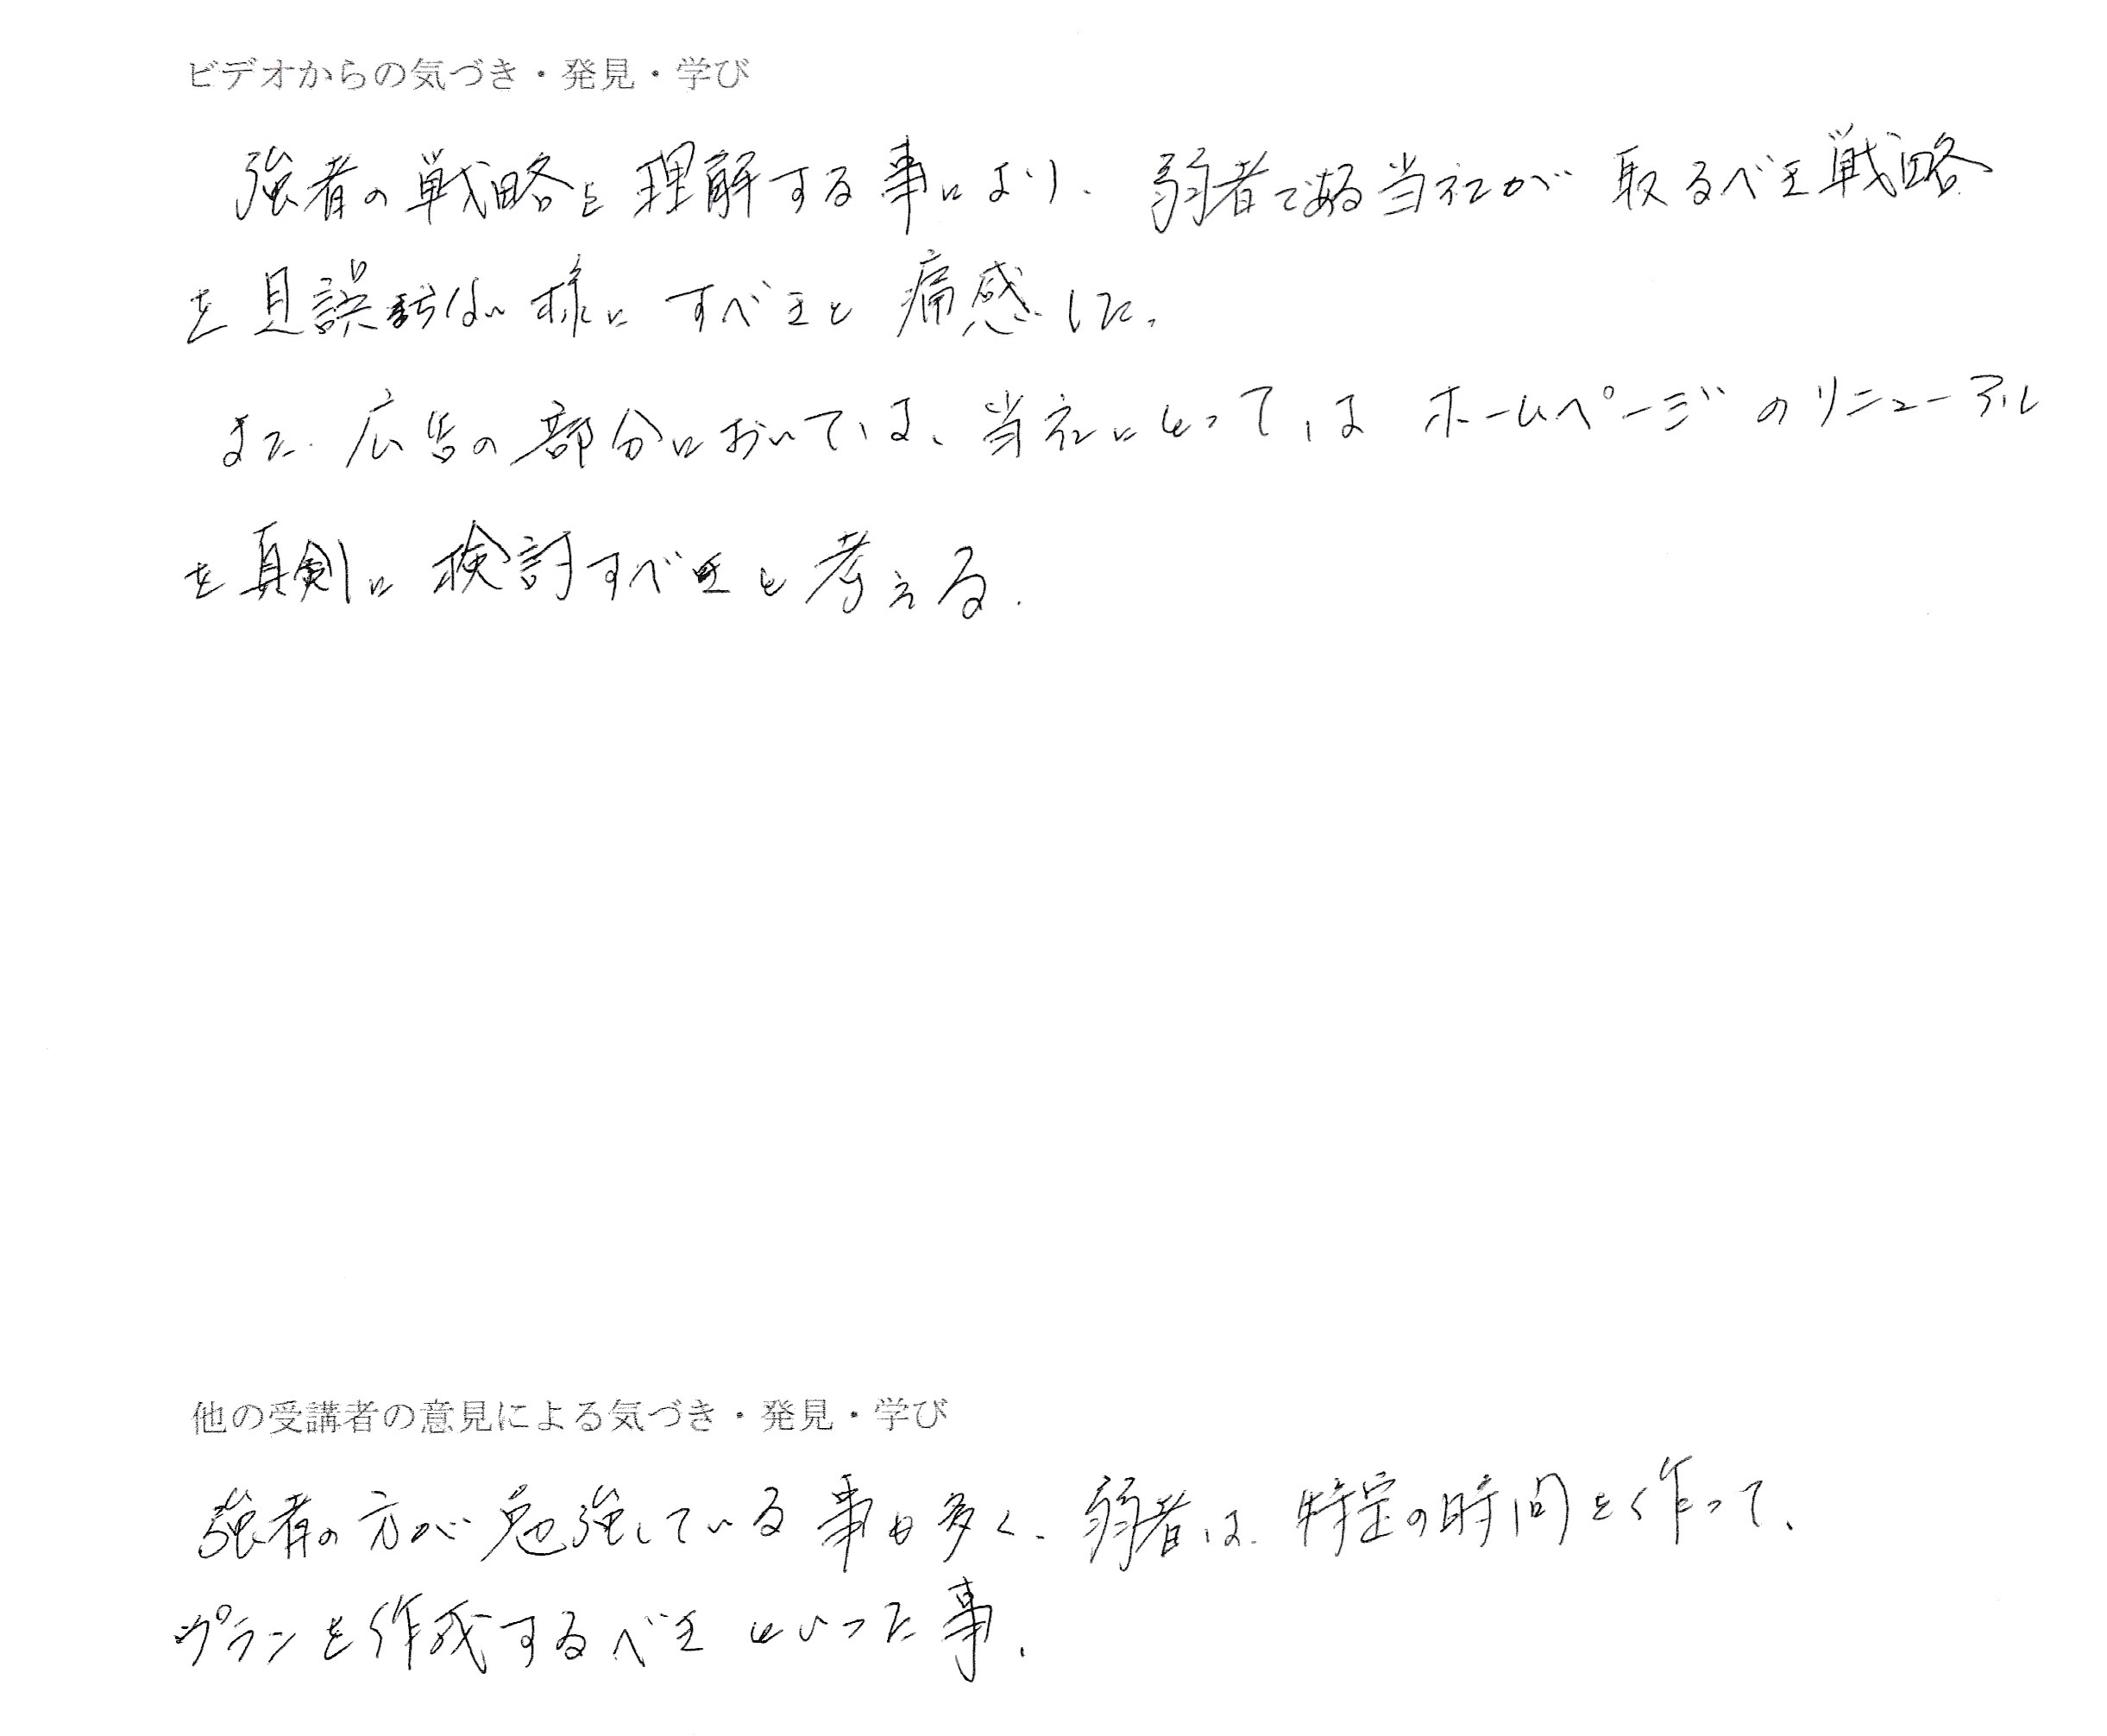 ビデオからの気づき・発見・学び
強者の戦略を理解する事により、弱者である当社が取るべき戦略
を見誤らない様にすべきと痛感した。
また、広告の部分においては、当社にとってはホームページのリニューアル
を真剣に検討すべきと考える。
他の受講者の意見による気づき・発見・学び
強者の方が勉強している事も多く、弱者は、特定の時間を作って、
プランを作成するべきといった事。